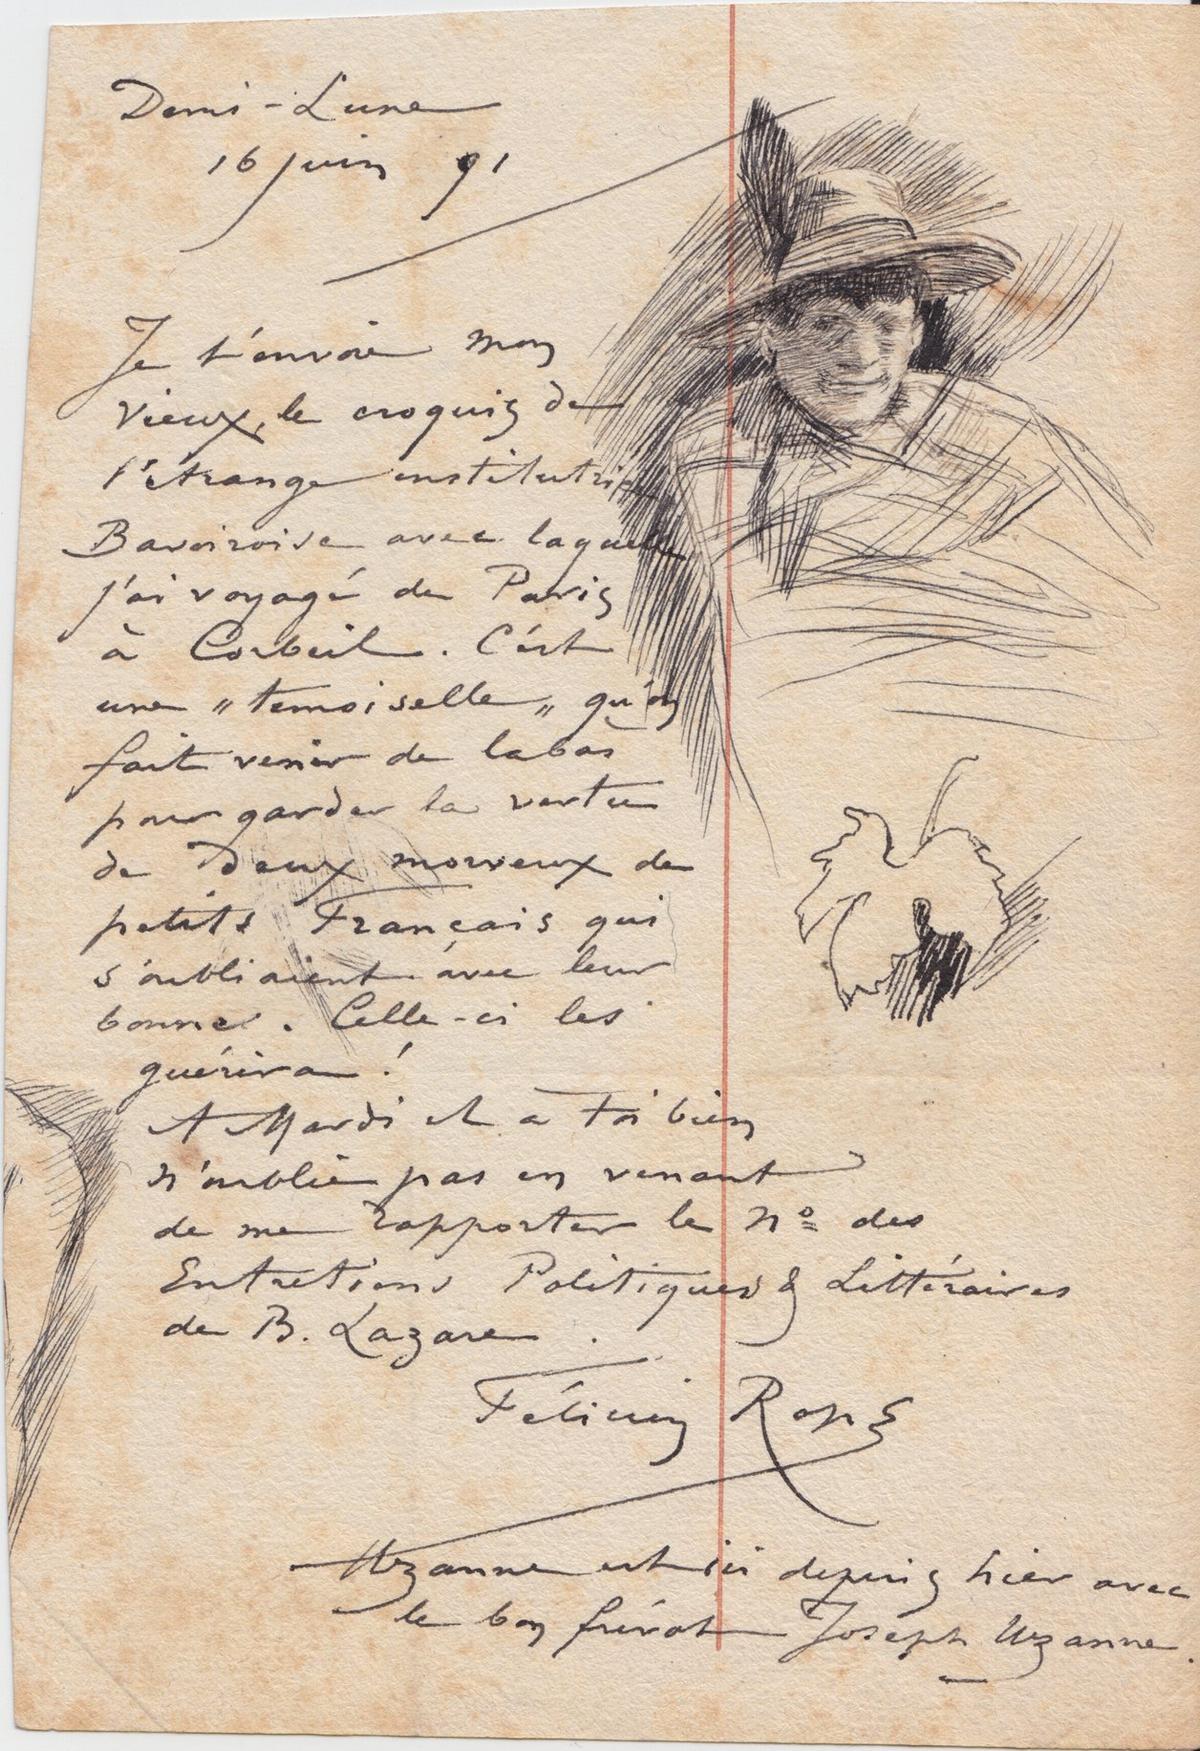 Demi-Lune
16 juin 91
Je t'envoie mon
vieux, le croquis de
l'étrange institutrice
Bavaroise avec laquelle
j'ai voyagé de Paris
à Corbeil. C'est
une „temoiselle„ qu'on
fait venir de labas
pour garder la vertu
de Deux morveux de
petits Français qui
s'oubliaient avec leur
bonne. Celle-ci les
guérira !
A Mardi et a toi bien
n'oublie pas en venant
de me rapporter le No des
Entretiens Politiques & Littéraires
de B. Lazare.
Félicien Rops
Uzanne est ici depuis hier avec
le bon frérot Joseph Uzanne.